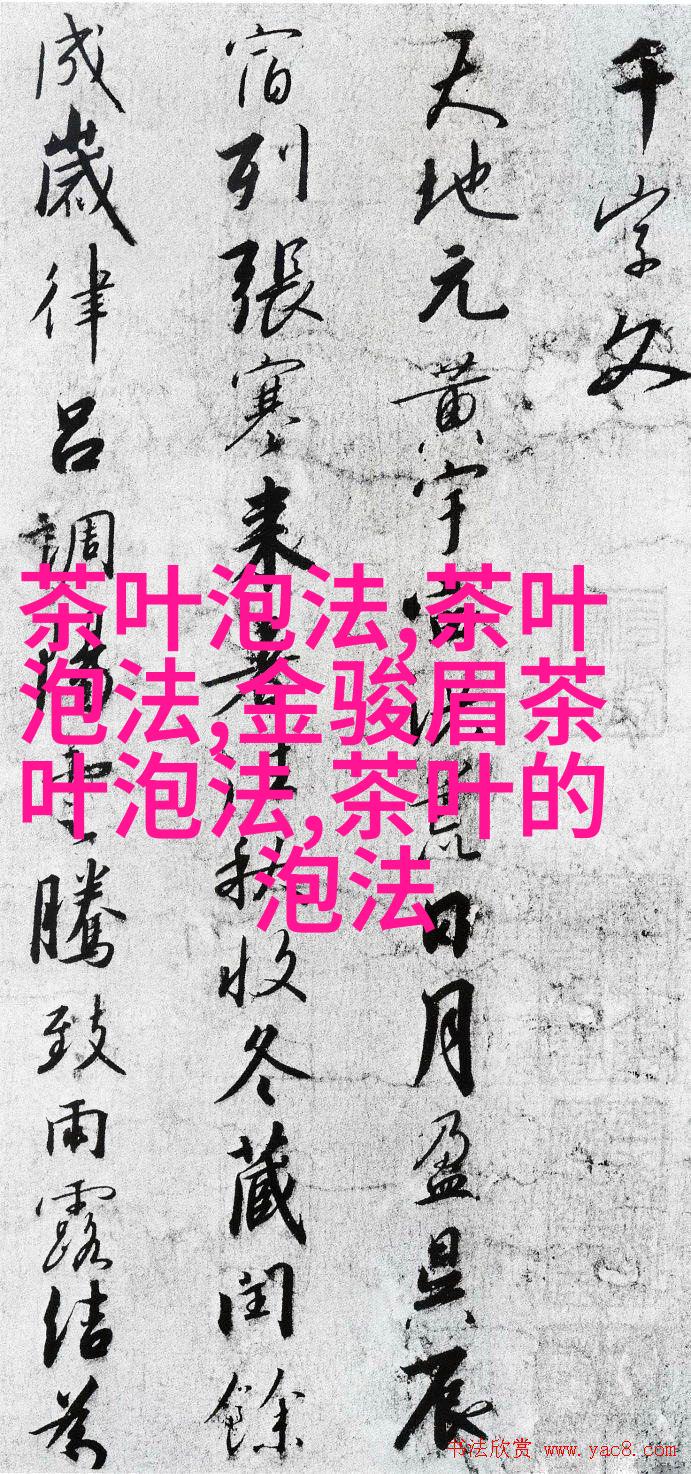 千字文
天地元黄宇宙洪荒日月盈昃辰
宿列張寒来暑往秋收冬蔵閏餘
成歲律呂調陽雲騰致雨露結為
茶叶泡法,茶叶
泡法,金骏眉茶
叶泡法,茶叶的
泡法
书法欣赏 www.yac8.com